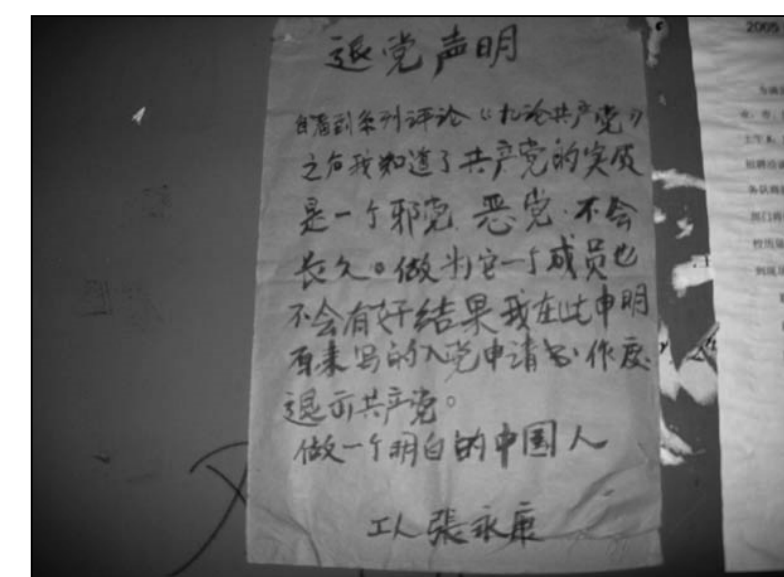 退党声明
自看到系列评论《九论共产党》
之后我知道了共产党的实质
是一个邪党、恶党、不会
长久。做为它一个成员也
不会有好结果我在此申明
原来写的入党申请书作废
退出共产党。
做一个明白的中国人
工人張永康
2005